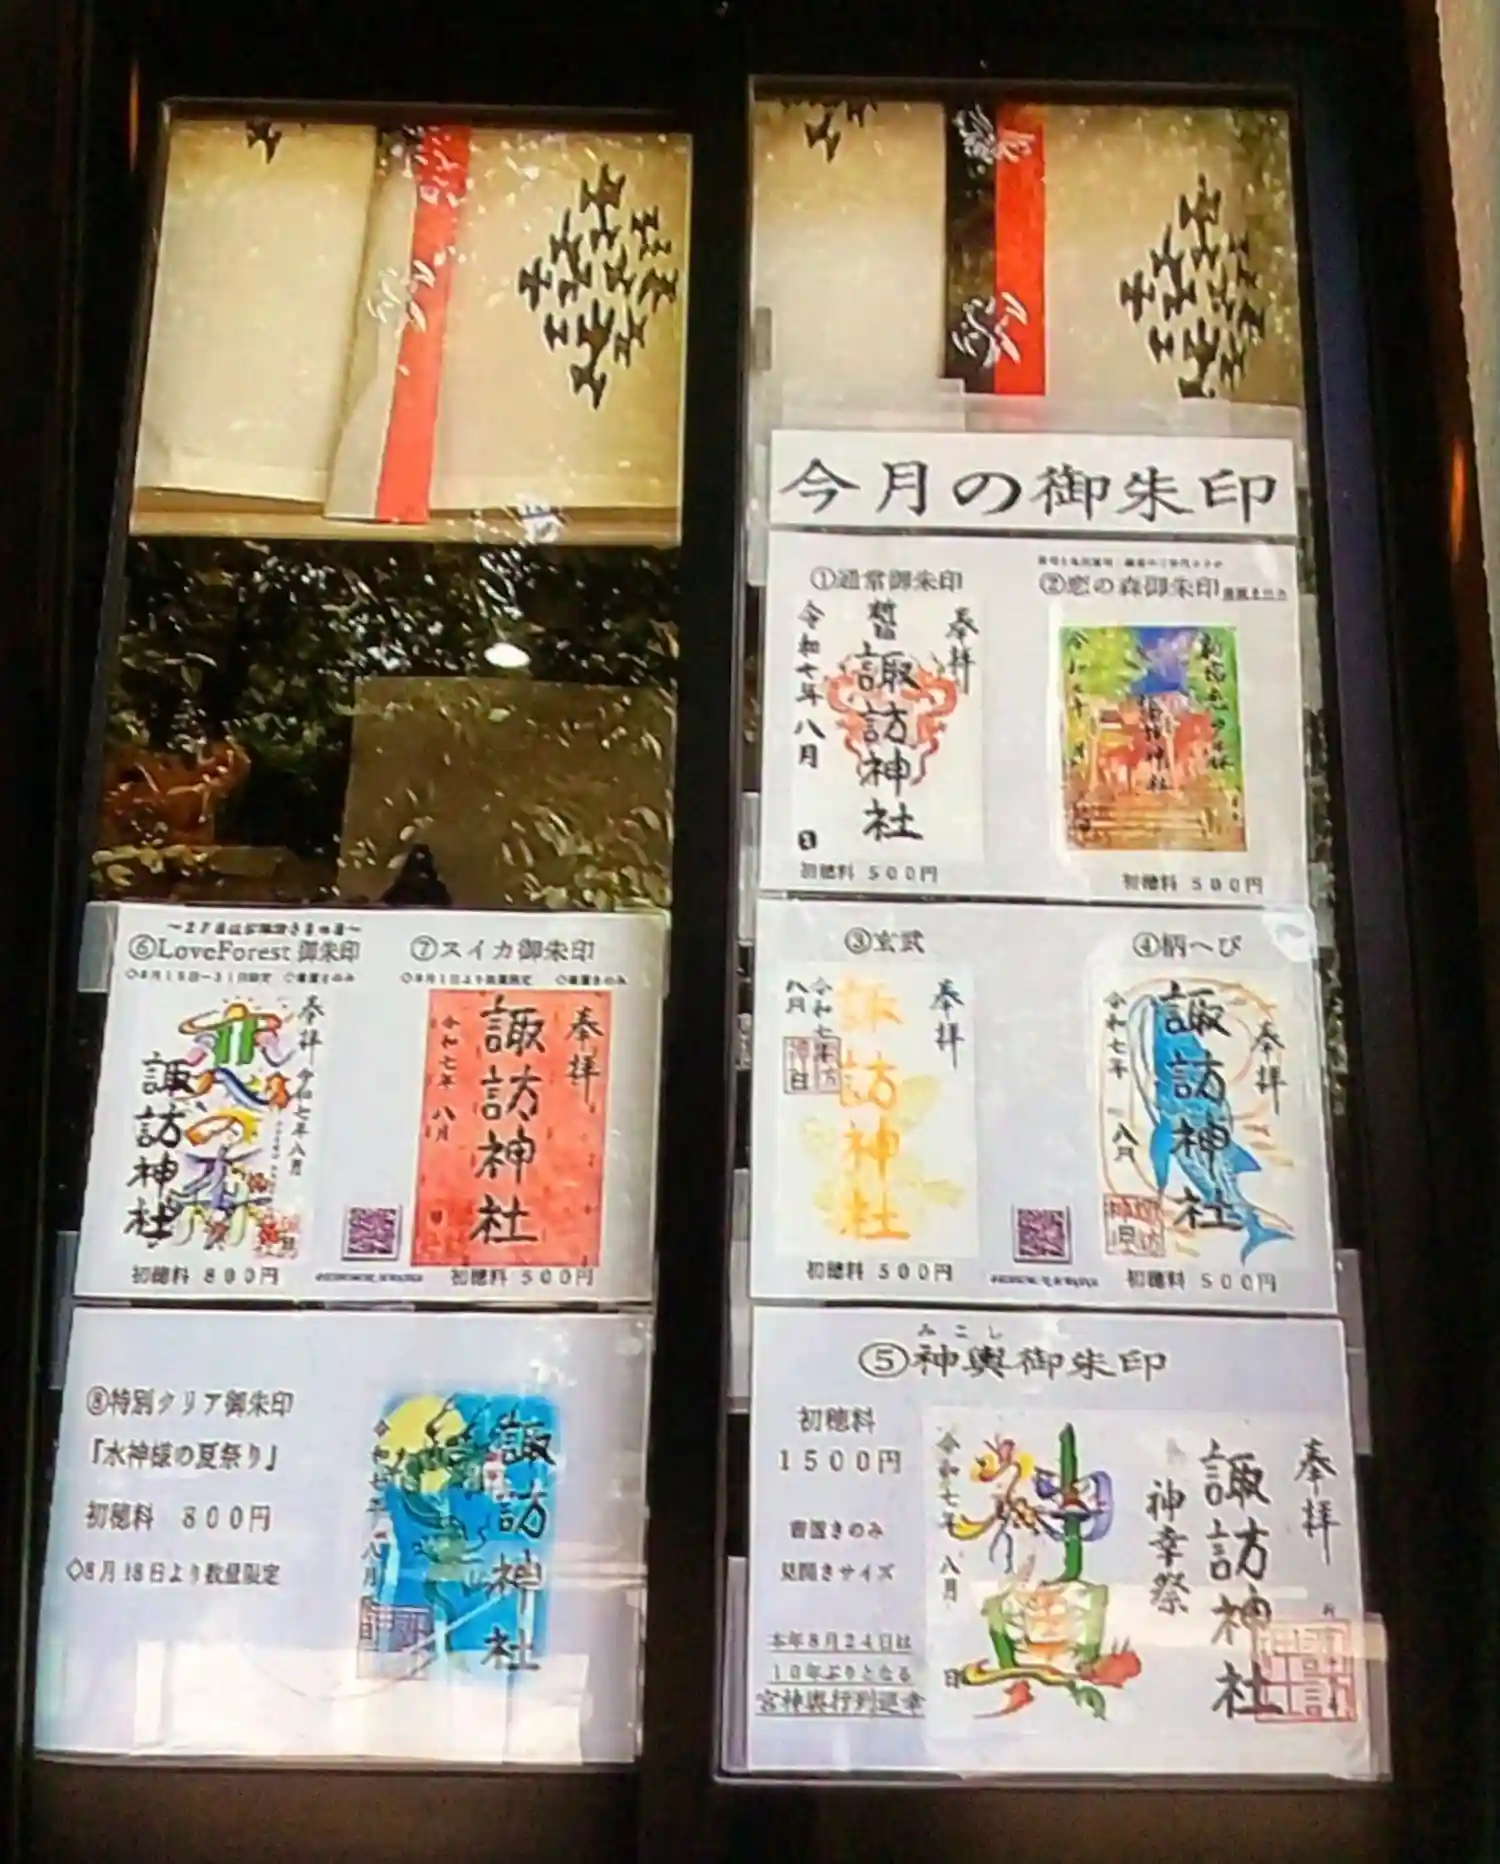 今月の御朱印
①通常御朱印
奉拝
諏訪神社
令和七年八月
初穂料 500円
②恋の森御朱印
初穂料 500円
③玄武
奉拝
諏訪神社
令和七年
八月
初穂料 500円
④柄へび
奉拝
諏訪神社
令和七年 八月
初穂料 500円
みこし
⑤神輿御朱印
初穂料
1500円
書置きのみ
見開きサイズ
本年8月24日は
10年ぶりとなる
宮神輿行列巡幸
奉拝
諏訪神社
神幸祭
令和七年 八月
⑥LoveForest御朱印
◇8月15日~31日限定 ◇書置きのみ
奉拝
令和七年八月
諏訪神社
初穂料 800円
⑦スイカ御朱印
◇8月1日より数量限定 ◇書置きのみ
奉拝
諏訪神社
令和七年 八月
初穂料 500円
⑧特別クリア御朱印
『水神様の夏祭り』
初穂料 800円
◇8月18日より数量限定
諏訪神社
令和七年八月